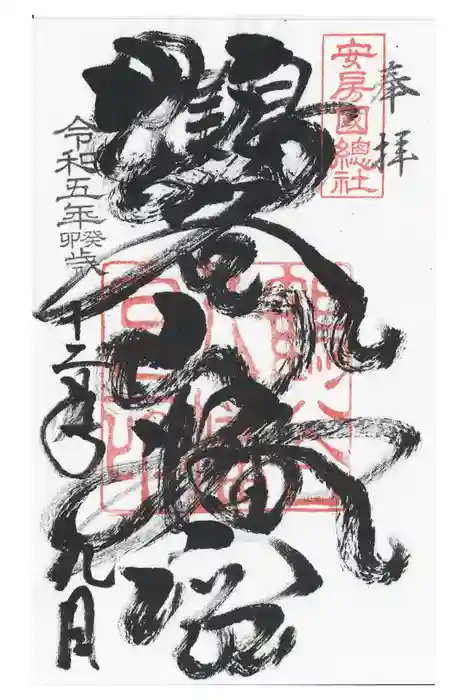 奉拝
安房國總社
鶴谷八幡宮
令和五年癸卯歳十二月九日